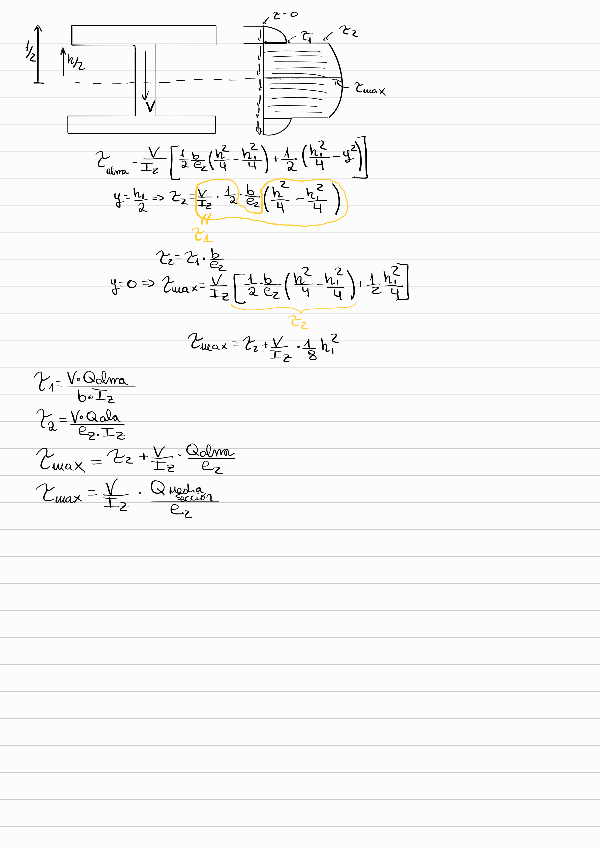 τ=0
τ₁
τ₂
1/2
h/2
V
τmax
τalma = V/Iz [1/2 b/e₂ (h²/4 - h₁²/4) + 1/2 · (h₁²/4 - y²)]
y = h₁/2 => τ₂ = V/Iz · 1/2 · b/e₂ (h²/4 - h₁²/4)
τ₁
τ₂ = τ₁ · b/e₂
y = 0 => τmax = V/Iz [1/2 · b/e₂ · (h²/4 - h₁²/4) + 1/2 h₁²/4]
τ₂
τmax = τ₂ + V/Iz · 1/8 h₁²
τ₁ = V·Qalma/b·Iz
τ₂ = V·Qala/e₂·Iz
τmax = τ₂ + V/Iz · Qalma/e₂
τmax = V/Iz · Q media sección/e₂